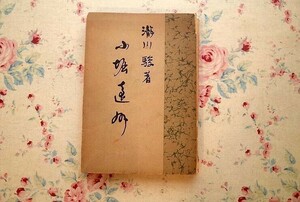 瀧川駿著
小堀遠州